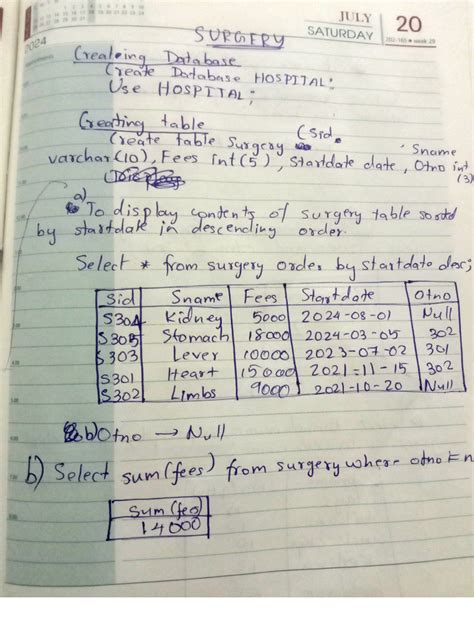 2024
JULY
SATURDAY
20
202-165 • week 29
SURGERY
Creating Database
Create Database HOSPITAL;
Use HOSPITAL;
Creating table
Create table Surgery (Sid
Sname
varchar(10), Fees int(5), Startdate date, Otno int
(3)
a)
To display contents of surgery table sorted
by startdate in descending order.
Select * from surgery order by startdate desc;
Sid Sname Fees Startdate Otno
S304 Kidney 5000 2024-08-01 Null
S305 Stomach 18000 2024-03-05 302
S303 Lever 10000 2023-07-02 301
S301 Heart 15000 2021-11-15 302
S302 Limbs 9000 2021-10-20 Null
b) Otno → Null
b) Select sum(fees) from surgery where otno = n
Sum(fes)
14000